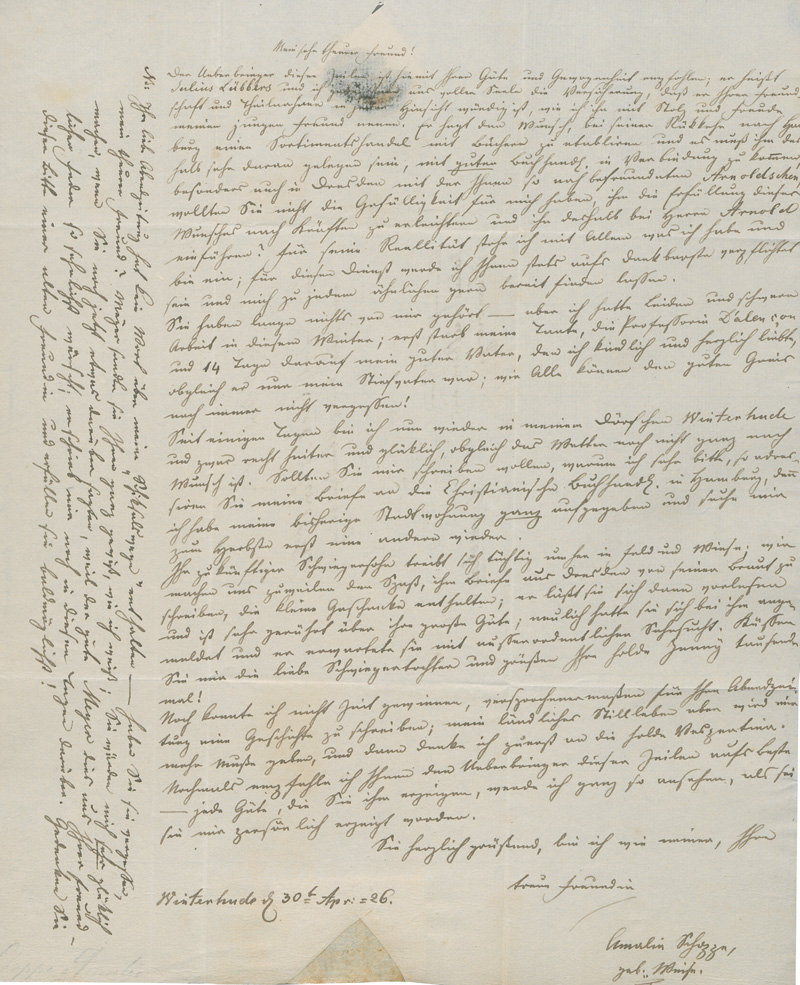 Mein sehr theurer Freund!
Der Ueberbringer dieser Zeilen ist hiemit Ihrer Güte und Gewogenheit empfohlen; er heißt
Julius Lübbers und ich aus voller Seele die Versicherung, daß er Ihrer Freund-
schaft und Theilnahme in Hinsicht würdig ist, wie ich ihn mit Stolz und Freude
meinen jungen Freund nenne. Er hegt den Wunsch, bei seiner Rükkehr nach Ham-
burg einen Sortimentshandel mit Büchern zu etabliren und es muß ihm des-
halb sehr daran gelegen sein, mit guten Buchhandl. in Verbindung zu kommen,
besonders auch in Dresden mit der Ihnen so nah befreundeten Arnoldschen,
wollten Sie nicht die Gefälligkeit für mich haben, ihm die Erfüllung dieses
Wunsches nach Kräften zu erleichtern und ihn deshalb bei Herrn Arnold
einführen? Für seine Reellität stehe ich mit Allem was ich habe und
bin ein; für diesen Dienst werde ich Ihnen stets aufs dankbarste verpflichtet
sein und mich zu jedem ähnlichen gern bereit finden lassen.
Sie haben lange nichts von mir gehört — aber ich hatte Leiden und schwere
Arbeit in diesem Winter; erst starb meine Tante, die Professorin d'Alençon
und 14 Tage darauf mein guter Vater, den ich kindlich und herzlich liebte,
obgleich er nur mein Stiefvater war; wir Alle können den guten Greis
noch immer nicht vergessen!
Seit einigen Tagen bin ich nun wieder in meinem Dörfchen Winterhude
und zwar recht heiter und glüklich, obgleich das Wetter noch nicht ganz nach
Wunsch ist. Sollten Sie mir schreiben wollen, warum ich sehr bitte, so adres-
siren Sie meine Briefe an die Christianische Buchhandl. in Hamburg, denn
ich habe meine bisherige Stadtwohnung ganz aufgegeben und suche mir
zum Herbste erst eine andere wieder.
Ihr zukünftiger Schwiegersohn treibt sich lustig umher in Feld und Wiese; wir
machen uns zuweilen den Spaß, ihm Briefe aus Dresden von seiner Braut zu
schreiben, die kleine Geschenke enthalten; er läßt sie sich dann vorlesen
und ist sehr gerührt über ihre große Güte; neulich hatte sie sich bei ihm ange-
meldet und er erwartete sie mit ausserordentlicher Sehnsucht. Küssen
Sie mir die liebe Schwiegertochter und grüßen Ihre holde Jenny tausend-
mal!
Noch konnte ich nicht Zeit gewinnen, versprochenermaßen für Ihre Abendzei-
tung eine Geschichte zu schreiben; mein ländliches Stillleben aber wird mir
mehr Muße geben, und dann denke ich zuerst an die holde Vespertina.
Nochmals empfehle ich Ihnen den Ueberbringer dieser Zeilen aufs beste
— jede Güte, die Sie ihm erzeigen, werde ich ganz so ansehen, als sei
sie mir persönlich erzeigt worden.
Sie herzlich grüßend, bin ich wie immer, Ihre
treue Freundin
Winterhude d. 30t. Apr. = 26.
Amalie Schoppe,
geb: Weise.
Ihre liebe Abendzeitung hat kein Wort über meine enthalten — haben Sie sie vergessen,
mein theurer Freund? Meyer sandte sie Ihnen ganz gewiß, wie ich weiß; Sie würden mich sehr glüklich
machen, wenn Sie noch jetzt etwas darüber sagten, weil der gute Meyer dies aus Ihrer freund-
lichen Feder so sehnlichst wünscht; er schrieb mir noch in diesen Tagen darüber. Gedenken Sie
dieser Bitte einer alten Freundin und erfüllen sie baldmöglichst!